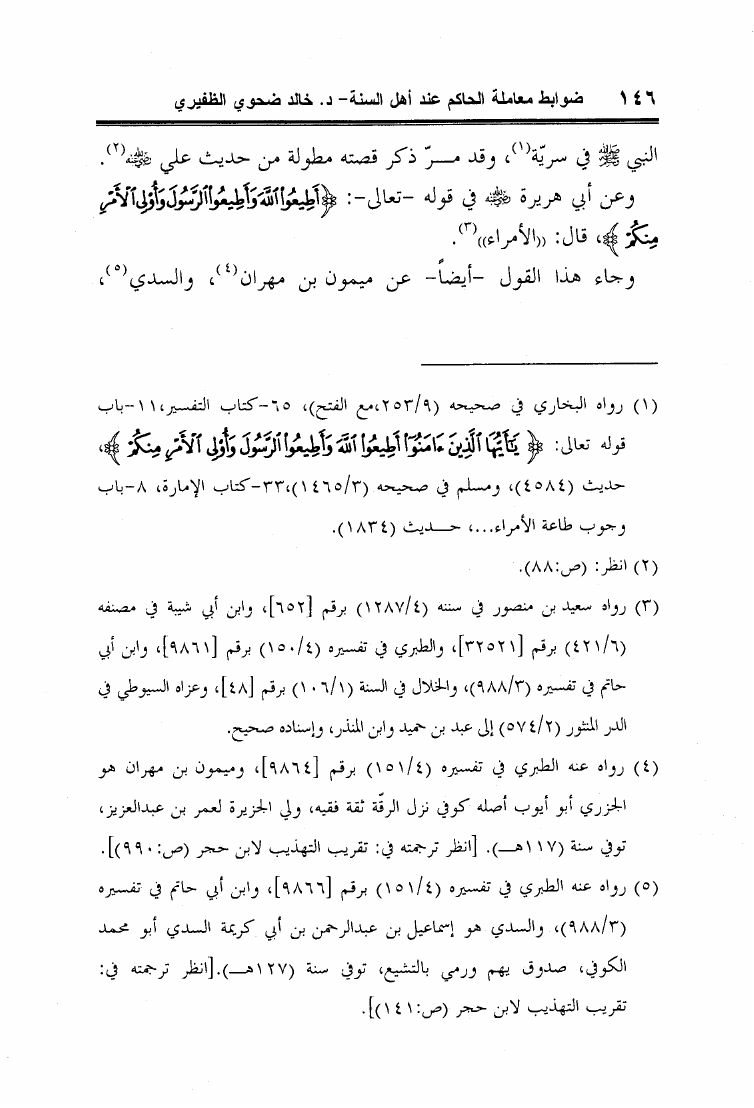 ١٤٦ ضوابط معاملة الحاكم عند أهل السنة- د. خالد ضحوي الظفيري
النبي ﷺ في سريّة(١)، وقد مـــرّ ذكر قصته مطولة من حديث علي ﵁(٢).
وعن أبي هريرة ﵁ في قوله -تعالى-: ﴿أَطِيعُوا۟ ٱللَّهَ وَأَطِيعُوا۟ ٱلرَّسُولَ وَأُو۟لِى ٱلْأَمْرِ
مِنكُمْ﴾، قال: ((الأمراء))(٣).
وجاء هذا القول -أيضاً- عن ميمون بن مهران(٤)، والسدي(٥)،
(١) رواه البخاري في صحيحه (٢٥٣/٩،مع الفتح)، ٦٥-كتاب التفسير،١١-باب
قوله تعالى: ﴿يَٰٓأَيُّهَا ٱلَّذِينَ ءَامَنُوٓا۟ أَطِيعُوا۟ ٱللَّهَ وَأَطِيعُوا۟ ٱلرَّسُولَ وَأُو۟لِى ٱلْأَمْرِ مِنكُمْ﴾،
حديث (٤٥٨٤)، ومسلم في صحيحه (١٤٦٥/٣)،٣٣-كتاب الإمارة، ٨-باب
وجوب طاعة الأمراء...، حـــديث (١٨٣٤).
(٢) انظر: (ص:٨٨).
(٣) رواه سعيد بن منصور في سننه (١٢٨٧/٤) برقم [٦٥٢]، وابن أبي شيبة في مصنفه
(٤٢١/٦) برقم [٣٢٥٢١]، والطبري في تفسيره (١٥٠/٤) برقم [٩٨٦١]، وابن أبي
حاتم في تفسيره (٩٨٨/٣)، والخلال في السنة (١٠٦/١) برقم [٤٨]، وعزاه السيوطي في
الدر المنثور (٥٧٤/٢) إلى عبد بن حميد وابن المنذر، وإسناده صحيح.
(٤) رواه عنه الطبري في تفسيره (١٥١/٤) برقم [٩٨٦٤]، وميمون بن مهران هو
الجزري أبو أيوب أصله كوفي نزل الرقّة ثقة فقيه، ولي الجزيرة لعمر بن عبدالعزيز،
توفي سنة (١١٧هـــ). [انظر ترجمته في: تقريب التهذيب لابن حجر (ص:٩٩٠)].
(٥) رواه عنه الطبري في تفسيره (١٥١/٤) برقم [٩٨٦٦]، وابن أبي حاتم في تفسيره
(٩٨٨/٣)، والسدي هو إسماعيل بن عبدالرحمن بن أبي كريمة السدي أبو محمد
الكوفي، صدوق يهم ورمي بالتشيع، توفي سنة (١٢٧هـــ).[انظر ترجمته في:
تقريب التهذيب لابن حجر (ص:١٤١)].